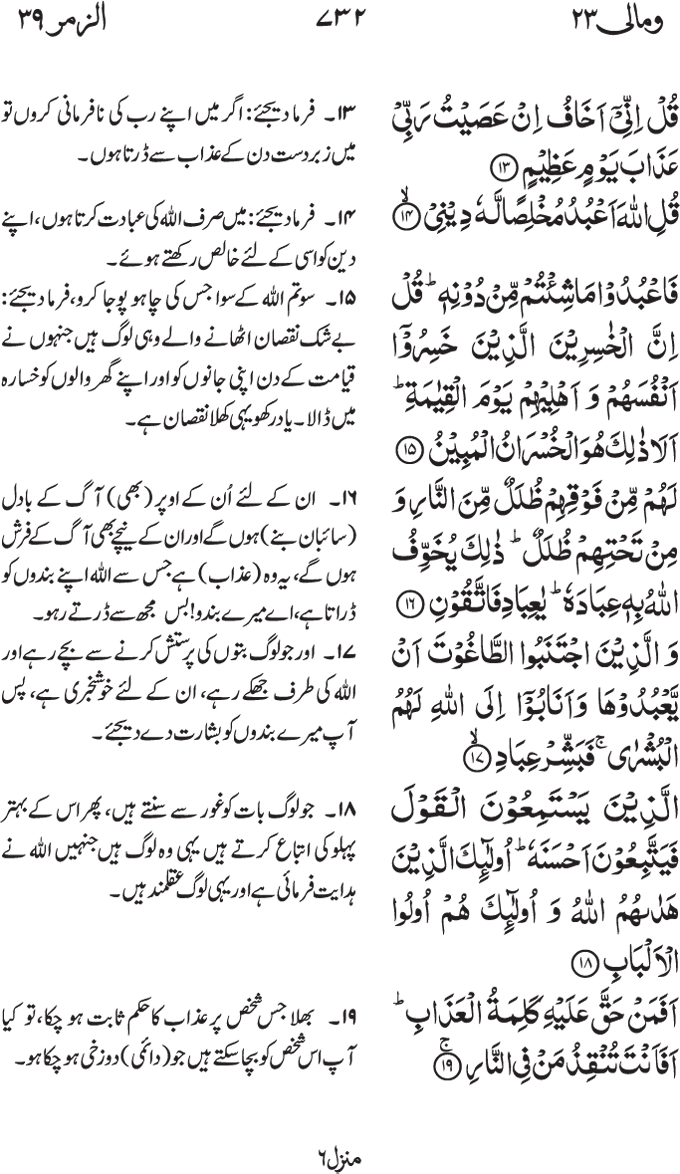 ومالی ۲۳ ۷۳۲ الزمر ۳۹
قُلْ اِنِّیْۤ اَخَافُ اِنْ عَصَیْتُ رَبِّیْ
عَذَابَ یَوْمٍ عَظِیْمٍ ۝۱۳
قُلِ اللّٰهَ اَعْبُدُ مُخْلِصًا لَّهٗ دِیْنِیْ ۙ۝۱۴
فَاعْبُدُوْا مَا شِئْتُمْ مِّنْ دُوْنِهٖ ؕ قُلْ
اِنَّ الْخٰسِرِیْنَ الَّذِیْنَ خَسِرُوْۤا
اَنْفُسَهُمْ وَ اَهْلِیْهِمْ یَوْمَ الْقِیٰمَةِ ؕ
اَلَا ذٰلِكَ هُوَ الْخُسْرَانُ الْمُبِیْنُ ۝۱۵
لَهُمْ مِّنْ فَوْقِهِمْ ظُلَلٌ مِّنَ النَّارِ وَ
مِنْ تَحْتِهِمْ ظُلَلٌ ؕ ذٰلِكَ یُخَوِّفُ
اللّٰهُ بِهٖ عِبَادَهٗ ؕ یٰعِبَادِ فَاتَّقُوْنِ ۝۱۶
وَ الَّذِیْنَ اجْتَنَبُوا الطَّاغُوْتَ اَنْ
یَّعْبُدُوْهَا وَ اَنَابُوْۤا اِلَی اللّٰهِ لَهُمُ
الْبُشْرٰی ۚ فَبَشِّرْ عِبَادِ ۙ۝۱۷
الَّذِیْنَ یَسْتَمِعُوْنَ الْقَوْلَ
فَیَتَّبِعُوْنَ اَحْسَنَهٗ ؕ اُولٰٓئِكَ الَّذِیْنَ
هَدٰىهُمُ اللّٰهُ وَ اُولٰٓئِكَ هُمْ اُولُوا
الْاَلْبَابِ ۝۱۸
اَفَمَنْ حَقَّ عَلَیْهِ كَلِمَةُ الْعَذَابِ ؕ
اَفَاَنْتَ تُنْقِذُ مَنْ فِی النَّارِ ۚ۝۱۹
۱۳۔ فرما دیجئے: اگر میں اپنے رب کی نافرمانی کروں تو
میں زبردست دن کے عذاب سے ڈرتا ہوں۔
۱۴۔ فرما دیجئے: میں صرف اللہ کی عبادت کرتا ہوں، اپنے
دین کو اسی کے لئے خالص رکھتے ہوئے۔
۱۵۔ سو تم اللہ کے سوا جس کی چاہو پوجا کرو، فرما دیجئے:
بے شک نقصان اٹھانے والے وہی لوگ ہیں جنہوں نے
قیامت کے دن اپنی جانوں کو اور اپنے گھر والوں کو خسارہ
میں ڈالا۔ یاد رکھو یہی کھلا نقصان ہے۔
۱۶۔ ان کے لئے اُن کے اوپر (بھی) آگ کے بادل
(سائبان بنے) ہوں گے اور ان کے نیچے بھی آگ کے فرش
ہوں گے، یہ وہ (عذاب) ہے جس سے اللہ اپنے بندوں کو
ڈراتا ہے، اے میرے بندو! بس مجھ سے ڈرتے رہو۔
۱۷۔ اور جو لوگ بتوں کی پرستش کرنے سے بچے رہے اور
اللہ کی طرف جھکے رہے، ان کے لئے خوشخبری ہے، پس
آپ میرے بندوں کو بشارت دے دیجئے۔
۱۸۔ جو لوگ بات کو غور سے سنتے ہیں، پھر اس کے بہتر
پہلو کی اتباع کرتے ہیں یہی وہ لوگ ہیں جنہیں اللہ نے
ہدایت فرمائی ہے اور یہی لوگ عقلمند ہیں۔
۱۹۔ بھلا جس شخص پر عذاب کا حکم ثابت ہو چکا، تو کیا
آپ اس شخص کو بچا سکتے ہیں جو (دائمی) دوزخی ہو چکا ہو۔
منزل ۶